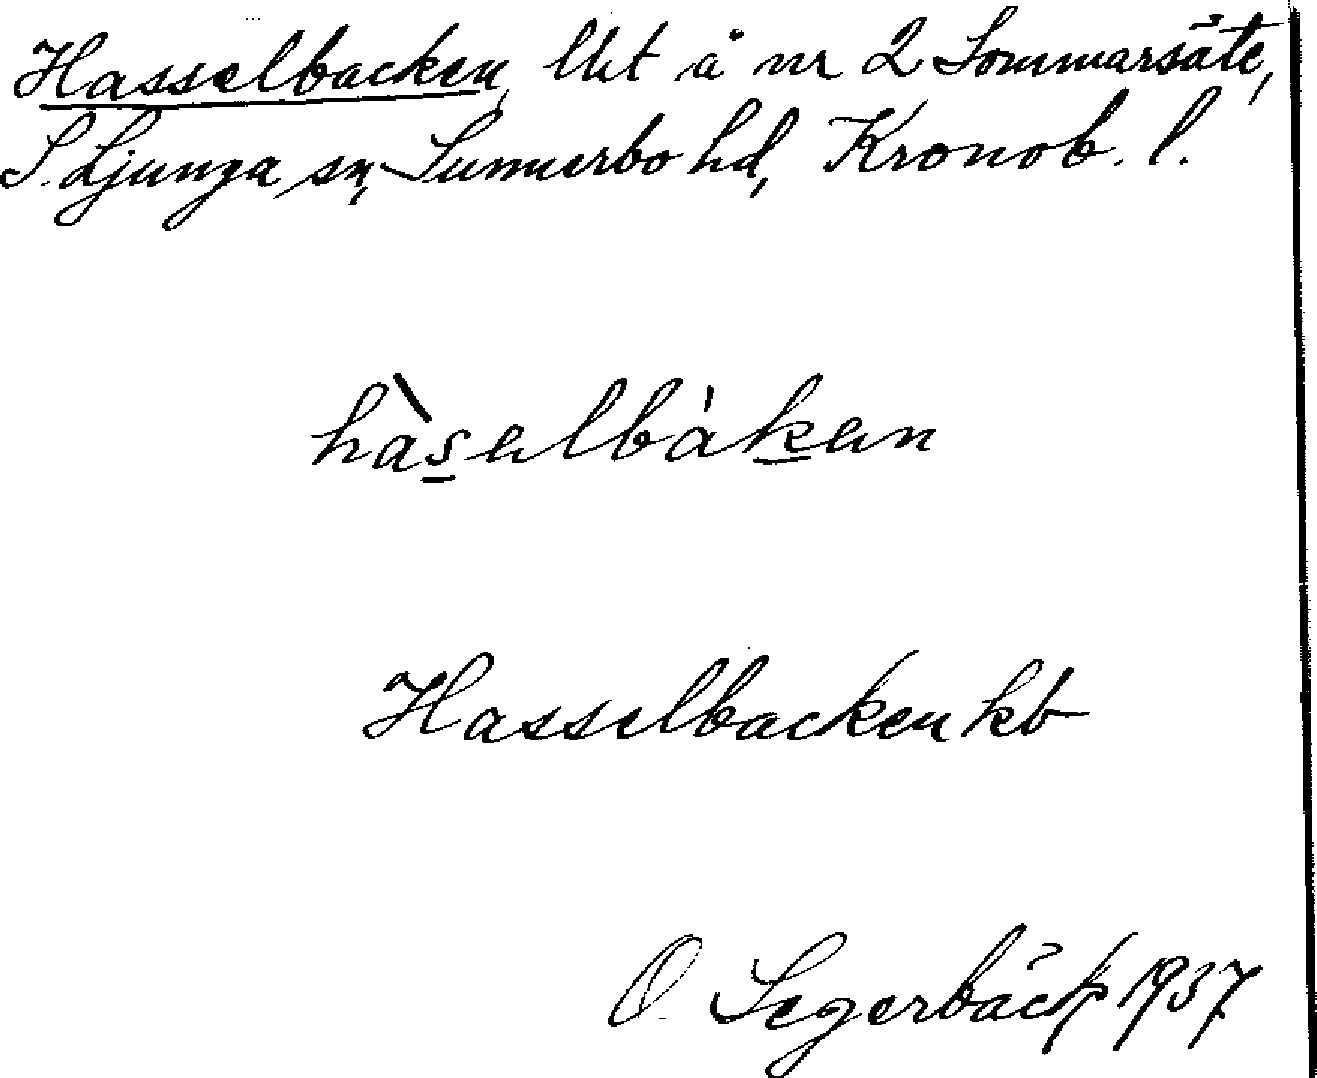 Hasselbacken, lht å nr 2 Sommarsäte,
S. Ljunga sn, Sunnerbo hd, Kronob. l.
hàs̲elbák̲en
Hasselbacken kb
O. Segerbäck 1937